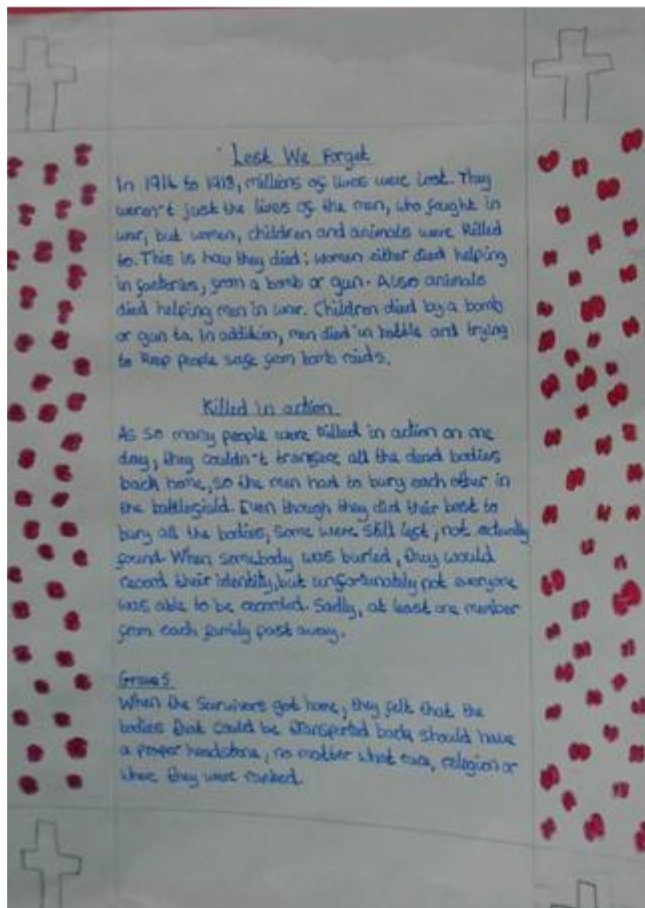 Lest We Forget
In 1914 to 1918, millions of lives were lost. They
weren't just the lives of the men, who fought in
war, but women, children and animals were killed
to. This is how they died: women either died helping
in factories, from a bomb or gun. Also animals
died helping men in war. Children died by a bomb
or gun to. In addition, men died in battle and trying
to keep people safe from bomb raids.
Killed in action
As so many people were killed in action on one
day, they couldn't all the dead bodies
back home, so the men had to bury each other in
the battlefield. Even though they did their best to
bury all the bodies, some were still lost, not actually
found. When somebody was buried, they would
record their identity, but unfortunately not everyone
was able to be recorded. Sadly, at least one member
from each family past away.
Graves
When the survivors got home, they felt that the
bodies that could be transported back should have
a proper headstone, no matter what race, religion or
where they were ranked.